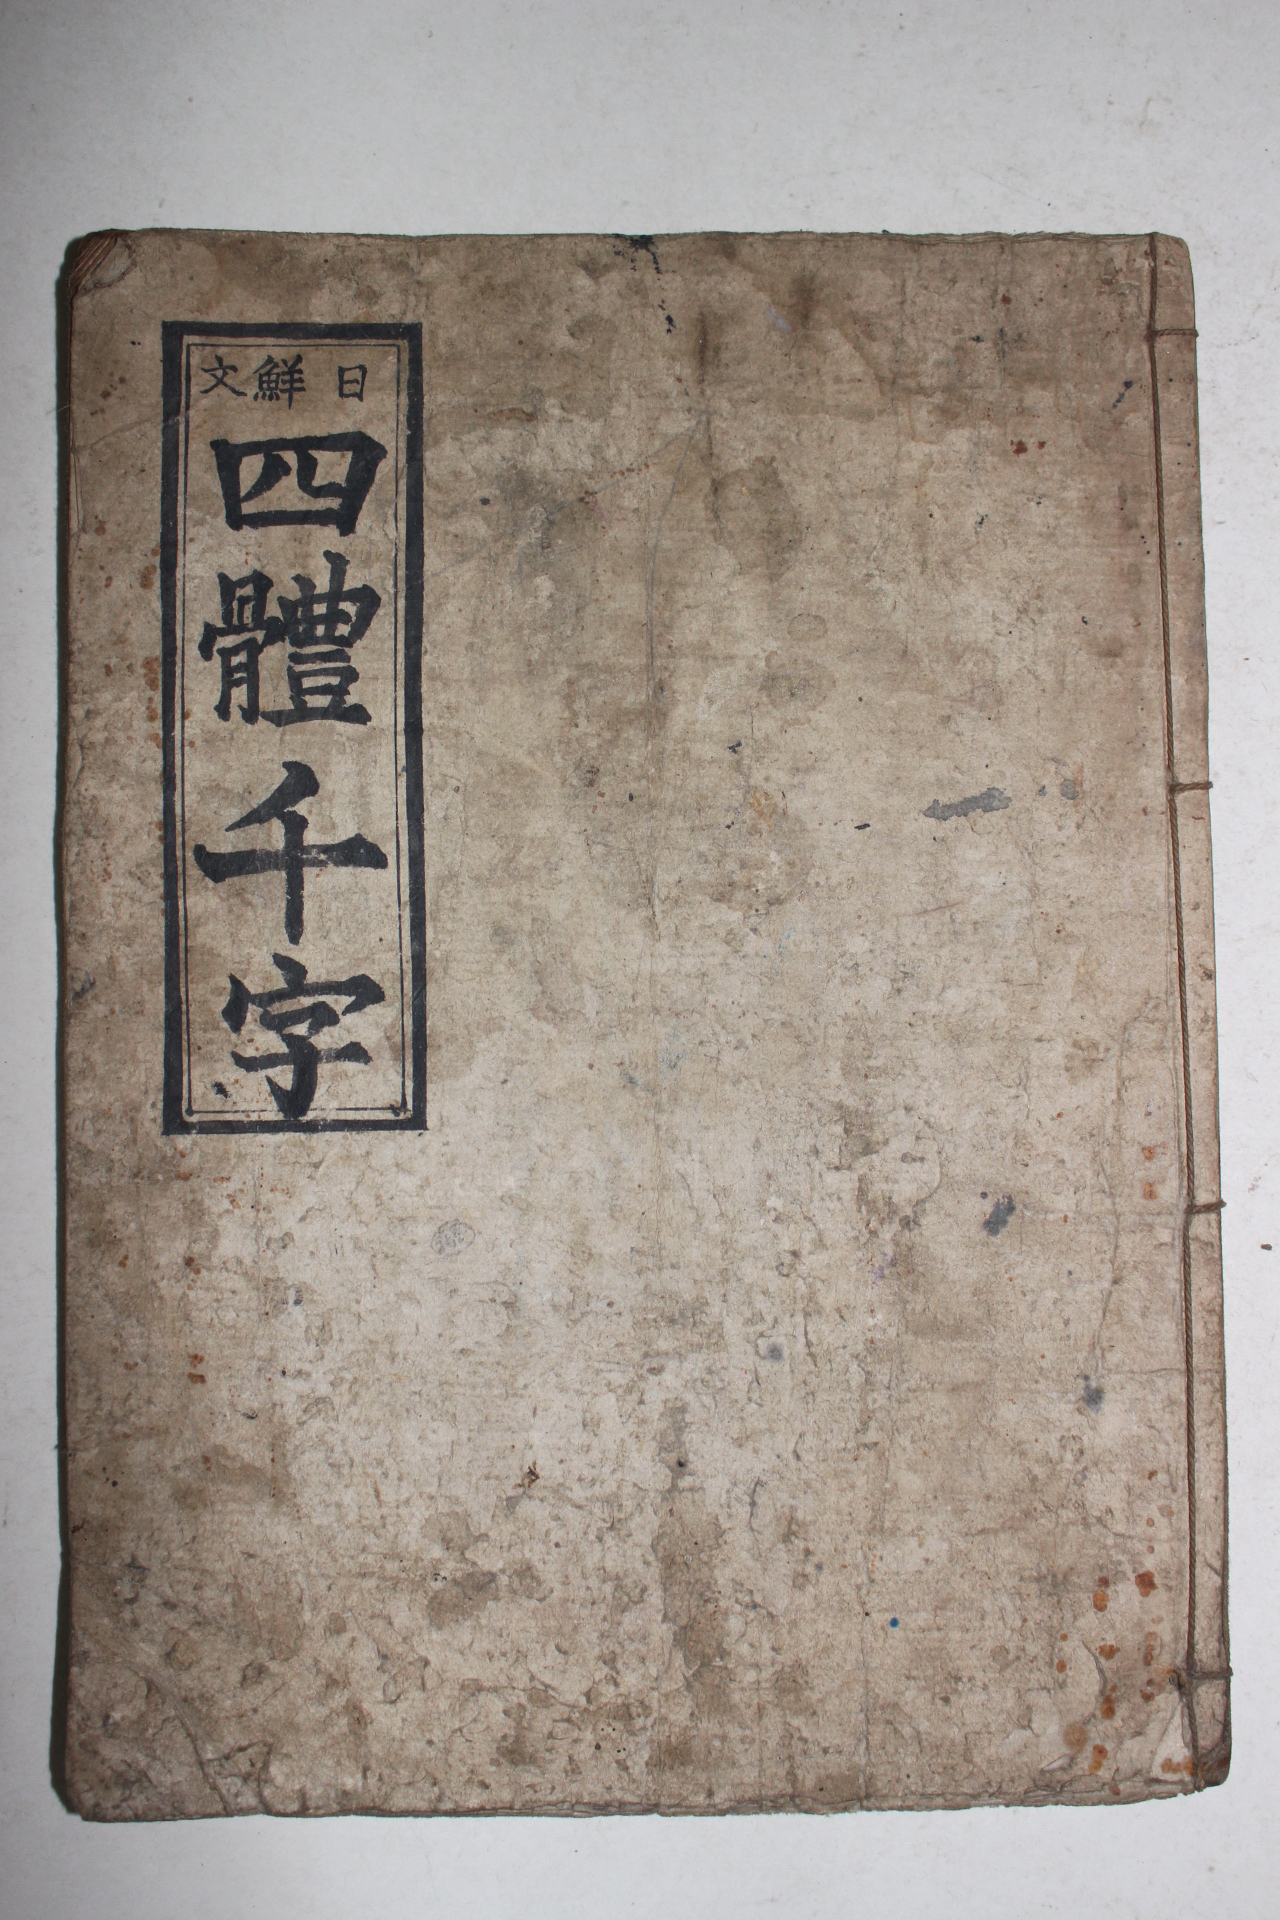 日鮮文
四體千字